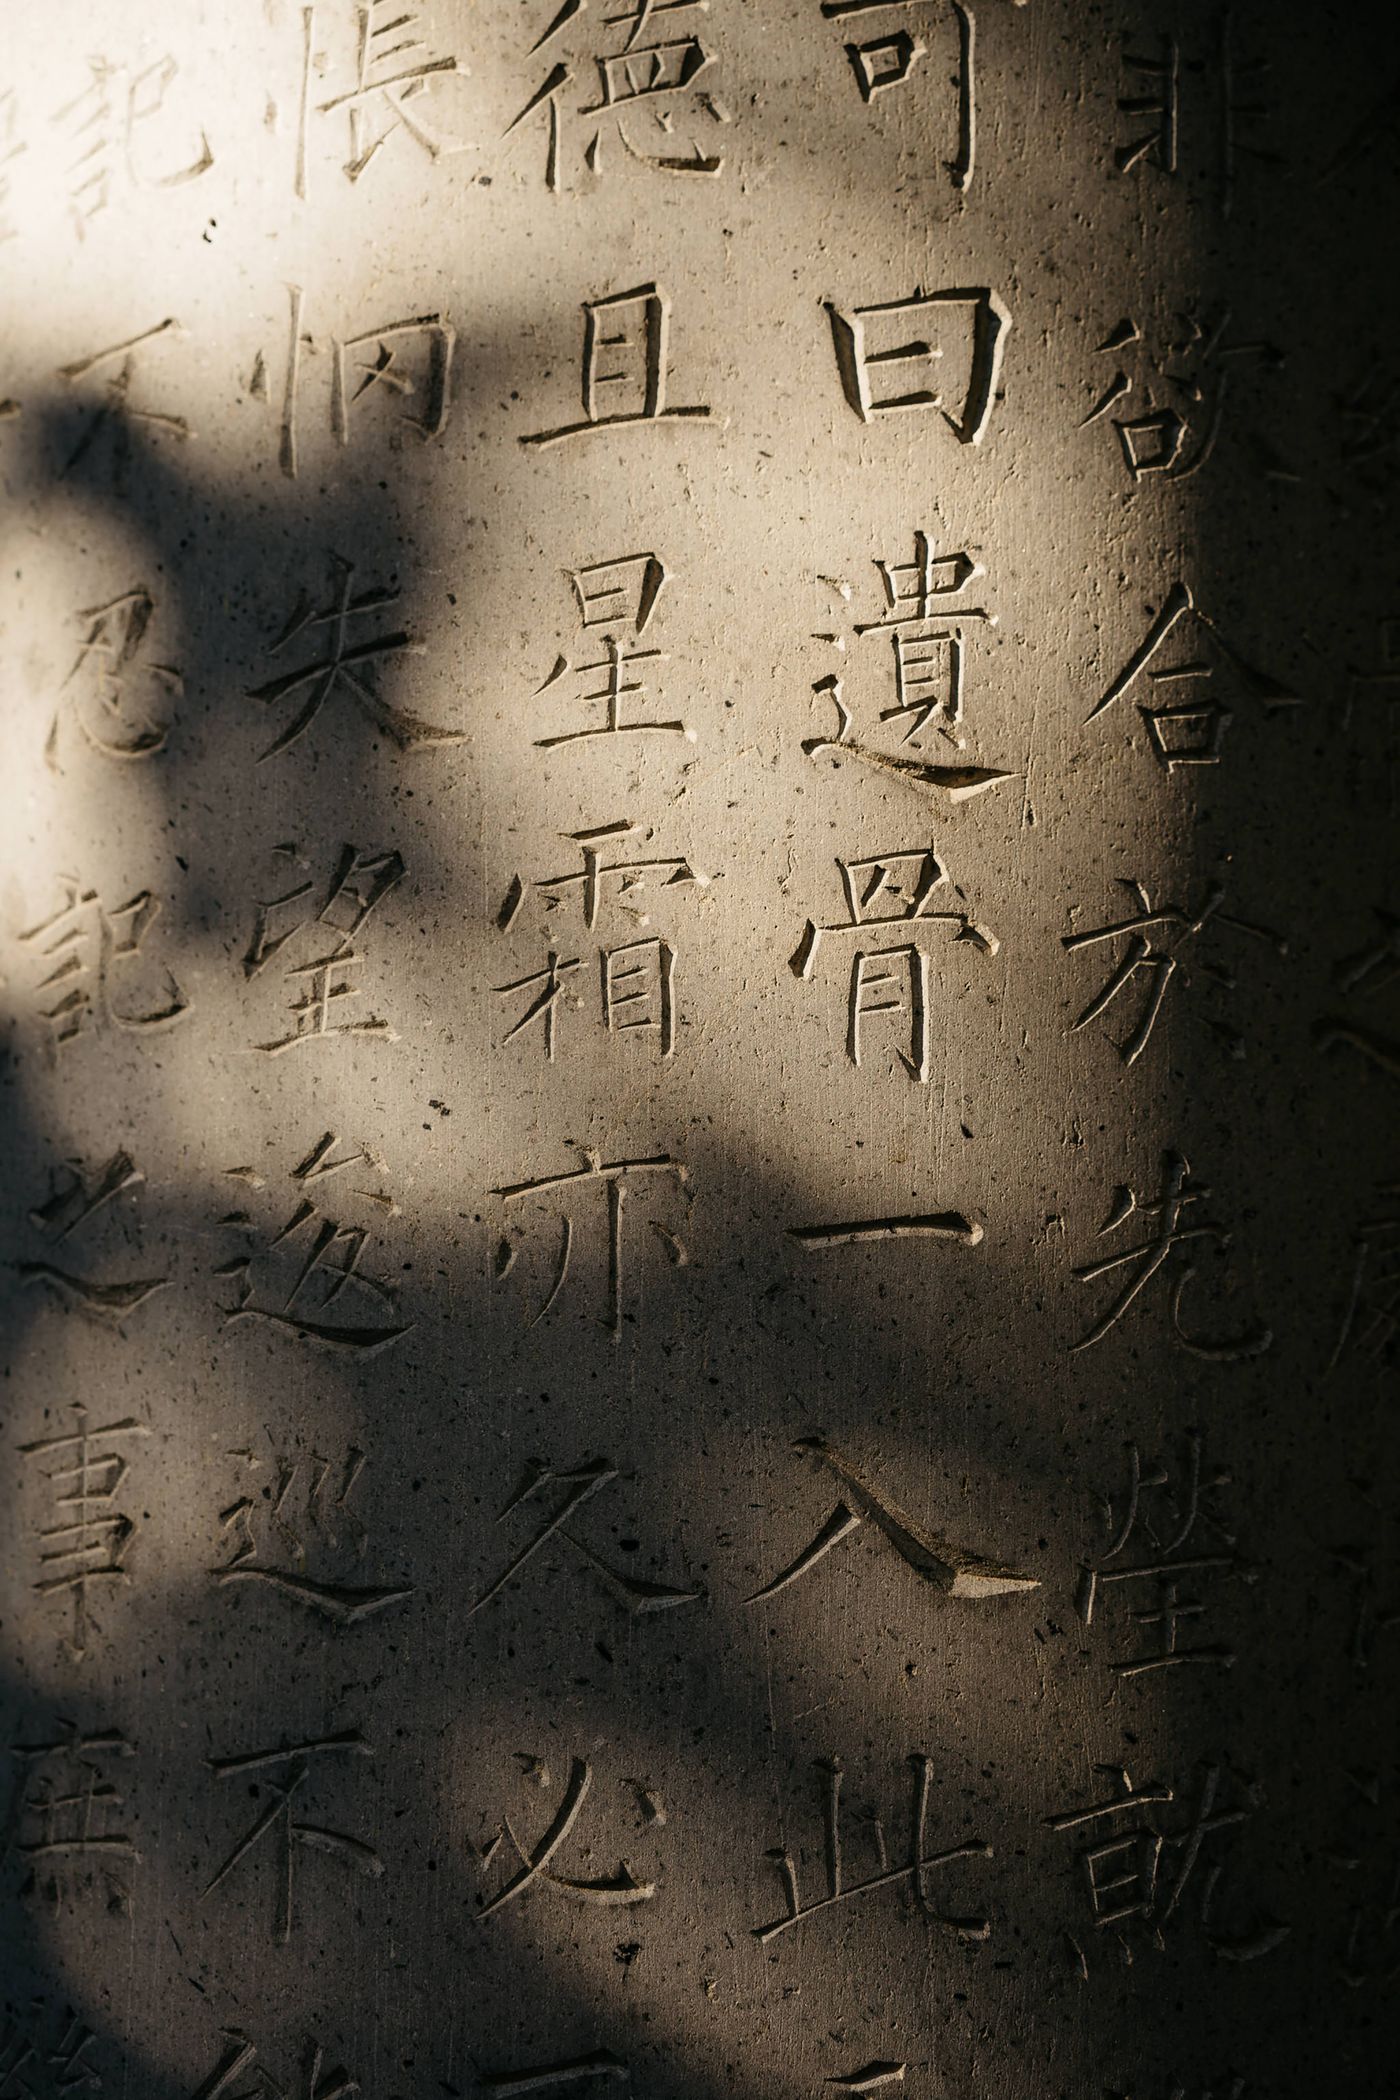 非欲合於先塋就
可曰遺骨一入此
德且星霜亦久必
悵惘失望逡巡不
記不忍記之事無